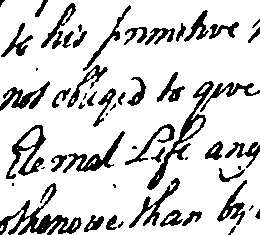 to his primitive
not obliged to give
Eternal Life any
otherwise than by